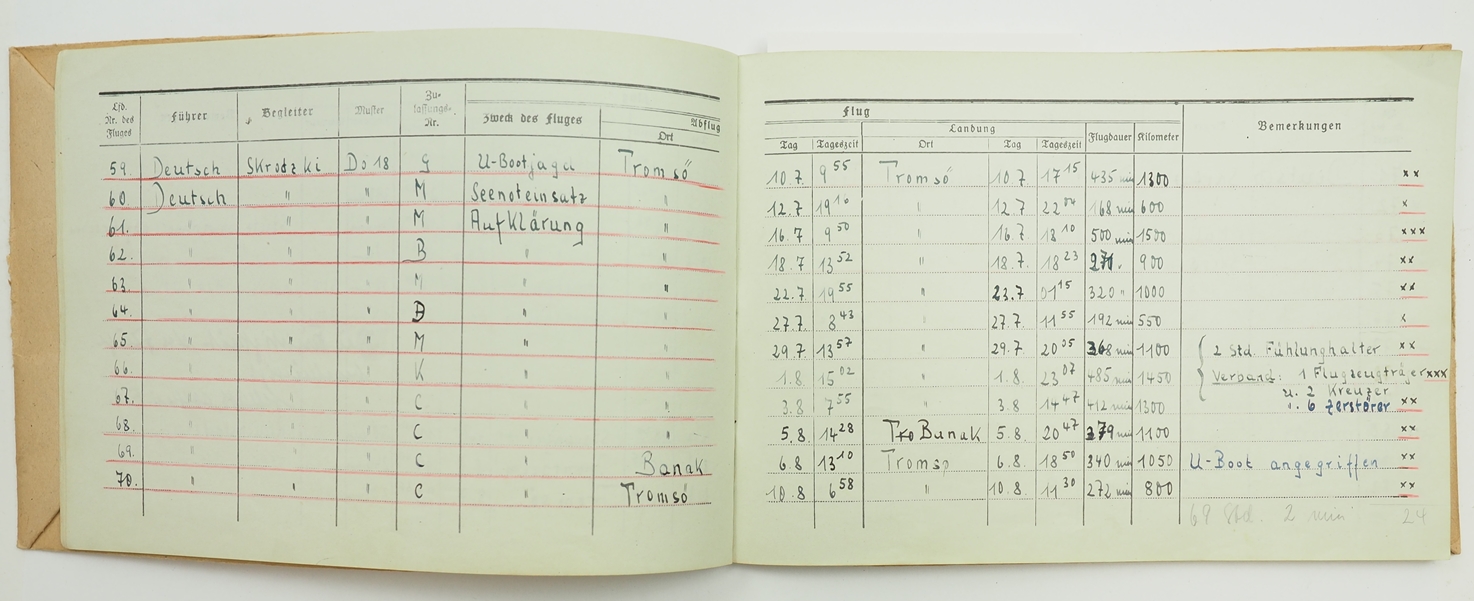 Lfd. Nr. des Fluges Führer Begleiter Muster Zu-lassungs-Nr. Zweck des Fluges Abflug
Ort
59. Deutsch Skrodzki Do 18 G U-Bootjagd Tromsö
60. Deutsch " " M Seenoteinsatz "
61. " " " M Aufklärung "
62. " " " B " "
63. " " " M " "
64. " " " D " "
65. " " " M " "
66. " " " K " "
67. " " " C " "
68. " " " C " "
69. " " " C " Banak
70. " " " C " Tromsö
Flug
Landung Flugdauer Kilometer Bemerkungen
Tag Tageszeit Ort Tag Tageszeit
10.7. 9 55 Tromsö 10.7. 17 15 435 min 1300 xx
12.7 19 16 " 12.7 22 04 168 min 600 x
16.7 9 50 " 16.7 18 10 500 min 1500 xxx
18.7 13 52 " 18.7. 18 23 271. 900 xx
22.7 19 55 " 23.7 01 15 320 " 1000 xx
27.7. 8 43 " 27.7. 11 55 192 min 550 x
29.7 13 57 " 29.7. 20 05 368 min 1100 2 Std. Fühlunghalter xx
1.8. 15 02 " 1.8. 23 07 485 min 1450 Verband: 1 Flugzeugträger xxx
u. 2 Kreuzer
3.8 7 55 " 3.8 14 47 412 min 1300 u. 6 Zerstörer xx
5.8. 14 28 Tro Banak 5.8. 20 47 379 min 1100 xx
6.8 13 10 Tromsö 6.8. 18 50 340 min 1050 U-Boot angegriffen xx
10.8 6 58 " 10.8. 11 30 272 min 800 xx
69 Std. 2 min 24